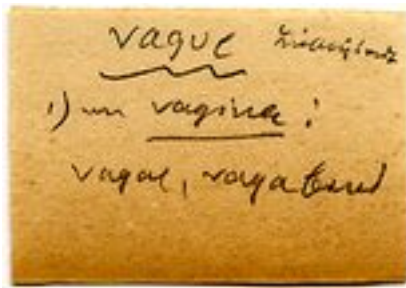 vague
1) un vagina:
vagal, vagabund